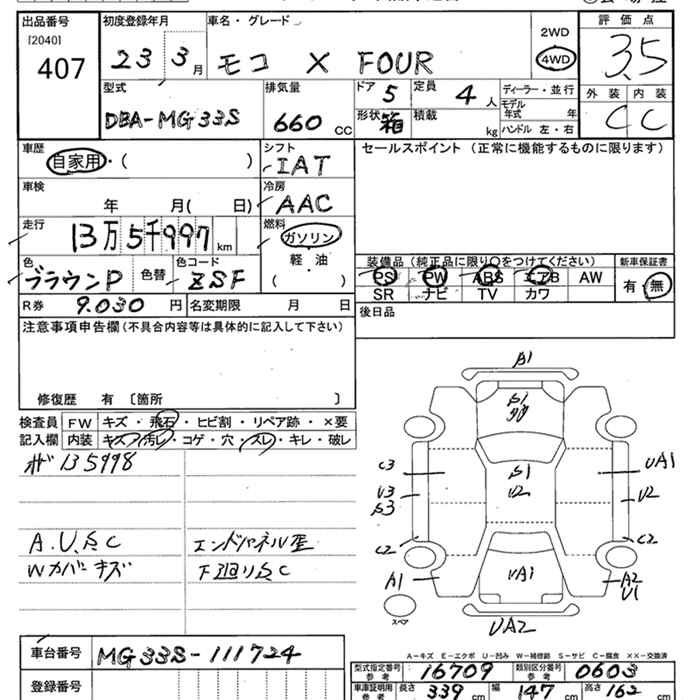 出品番号
[2040]
407
初度登録年月
23 3月
車名・グレード
モコ X FOUR
2WD
4WD
評価点
3.5
外装 内装
C C
型式
DBA-MG33S
排気量
660 CC
ドア 5
形状 箱
定員 4 人
積載 kg
ディーラー・並行
モデル年式 年
ハンドル 左・右
車歴
自家用・( )
シフト
IAT
セールスポイント (正常に機能するものに限ります)
車検
年 月( 日)
冷房
AAC
走行
13万5千997 km
燃料
ガソリン
軽・油
( ・ )
色
ブラウンP
色替
色コード
ZSF
装備品 (純正品に限り○をつけてください)
PS PW ABS エアB AW
SR ナビ TV カワ
新車保証書
有・無
R券 9.030 円
名変期限 月 日
後日品
注意事項申告欄 (不具合内容等は具体的に記入して下さい)
修復歴 有 〔箇所 〕
検査員
記入欄
FW キズ・飛石・ヒビ割・リペア跡・×要
内装 キズ・汚レ・コゲ・穴・スレ・キレ・破レ
135998
A.U.S.C
Wカバーキズ
エンドパネル歪
下廻りS.C
B1
S1
C3
S1
U2
UA1
U3
S3
U2
C2
C2
A1
UA1
A2
U1
スペア
UA2
A-キズ E-エクボ U-凹み W-補修跡 S-サビ C-腐食 XX-交換済
車台番号 MG33S-111724
登録番号
型式指定番号
参考
16709
類別区分番号
参考
0603
車庫証明用
参考
長さ 339 cm
幅 147 cm
高さ 162 cm